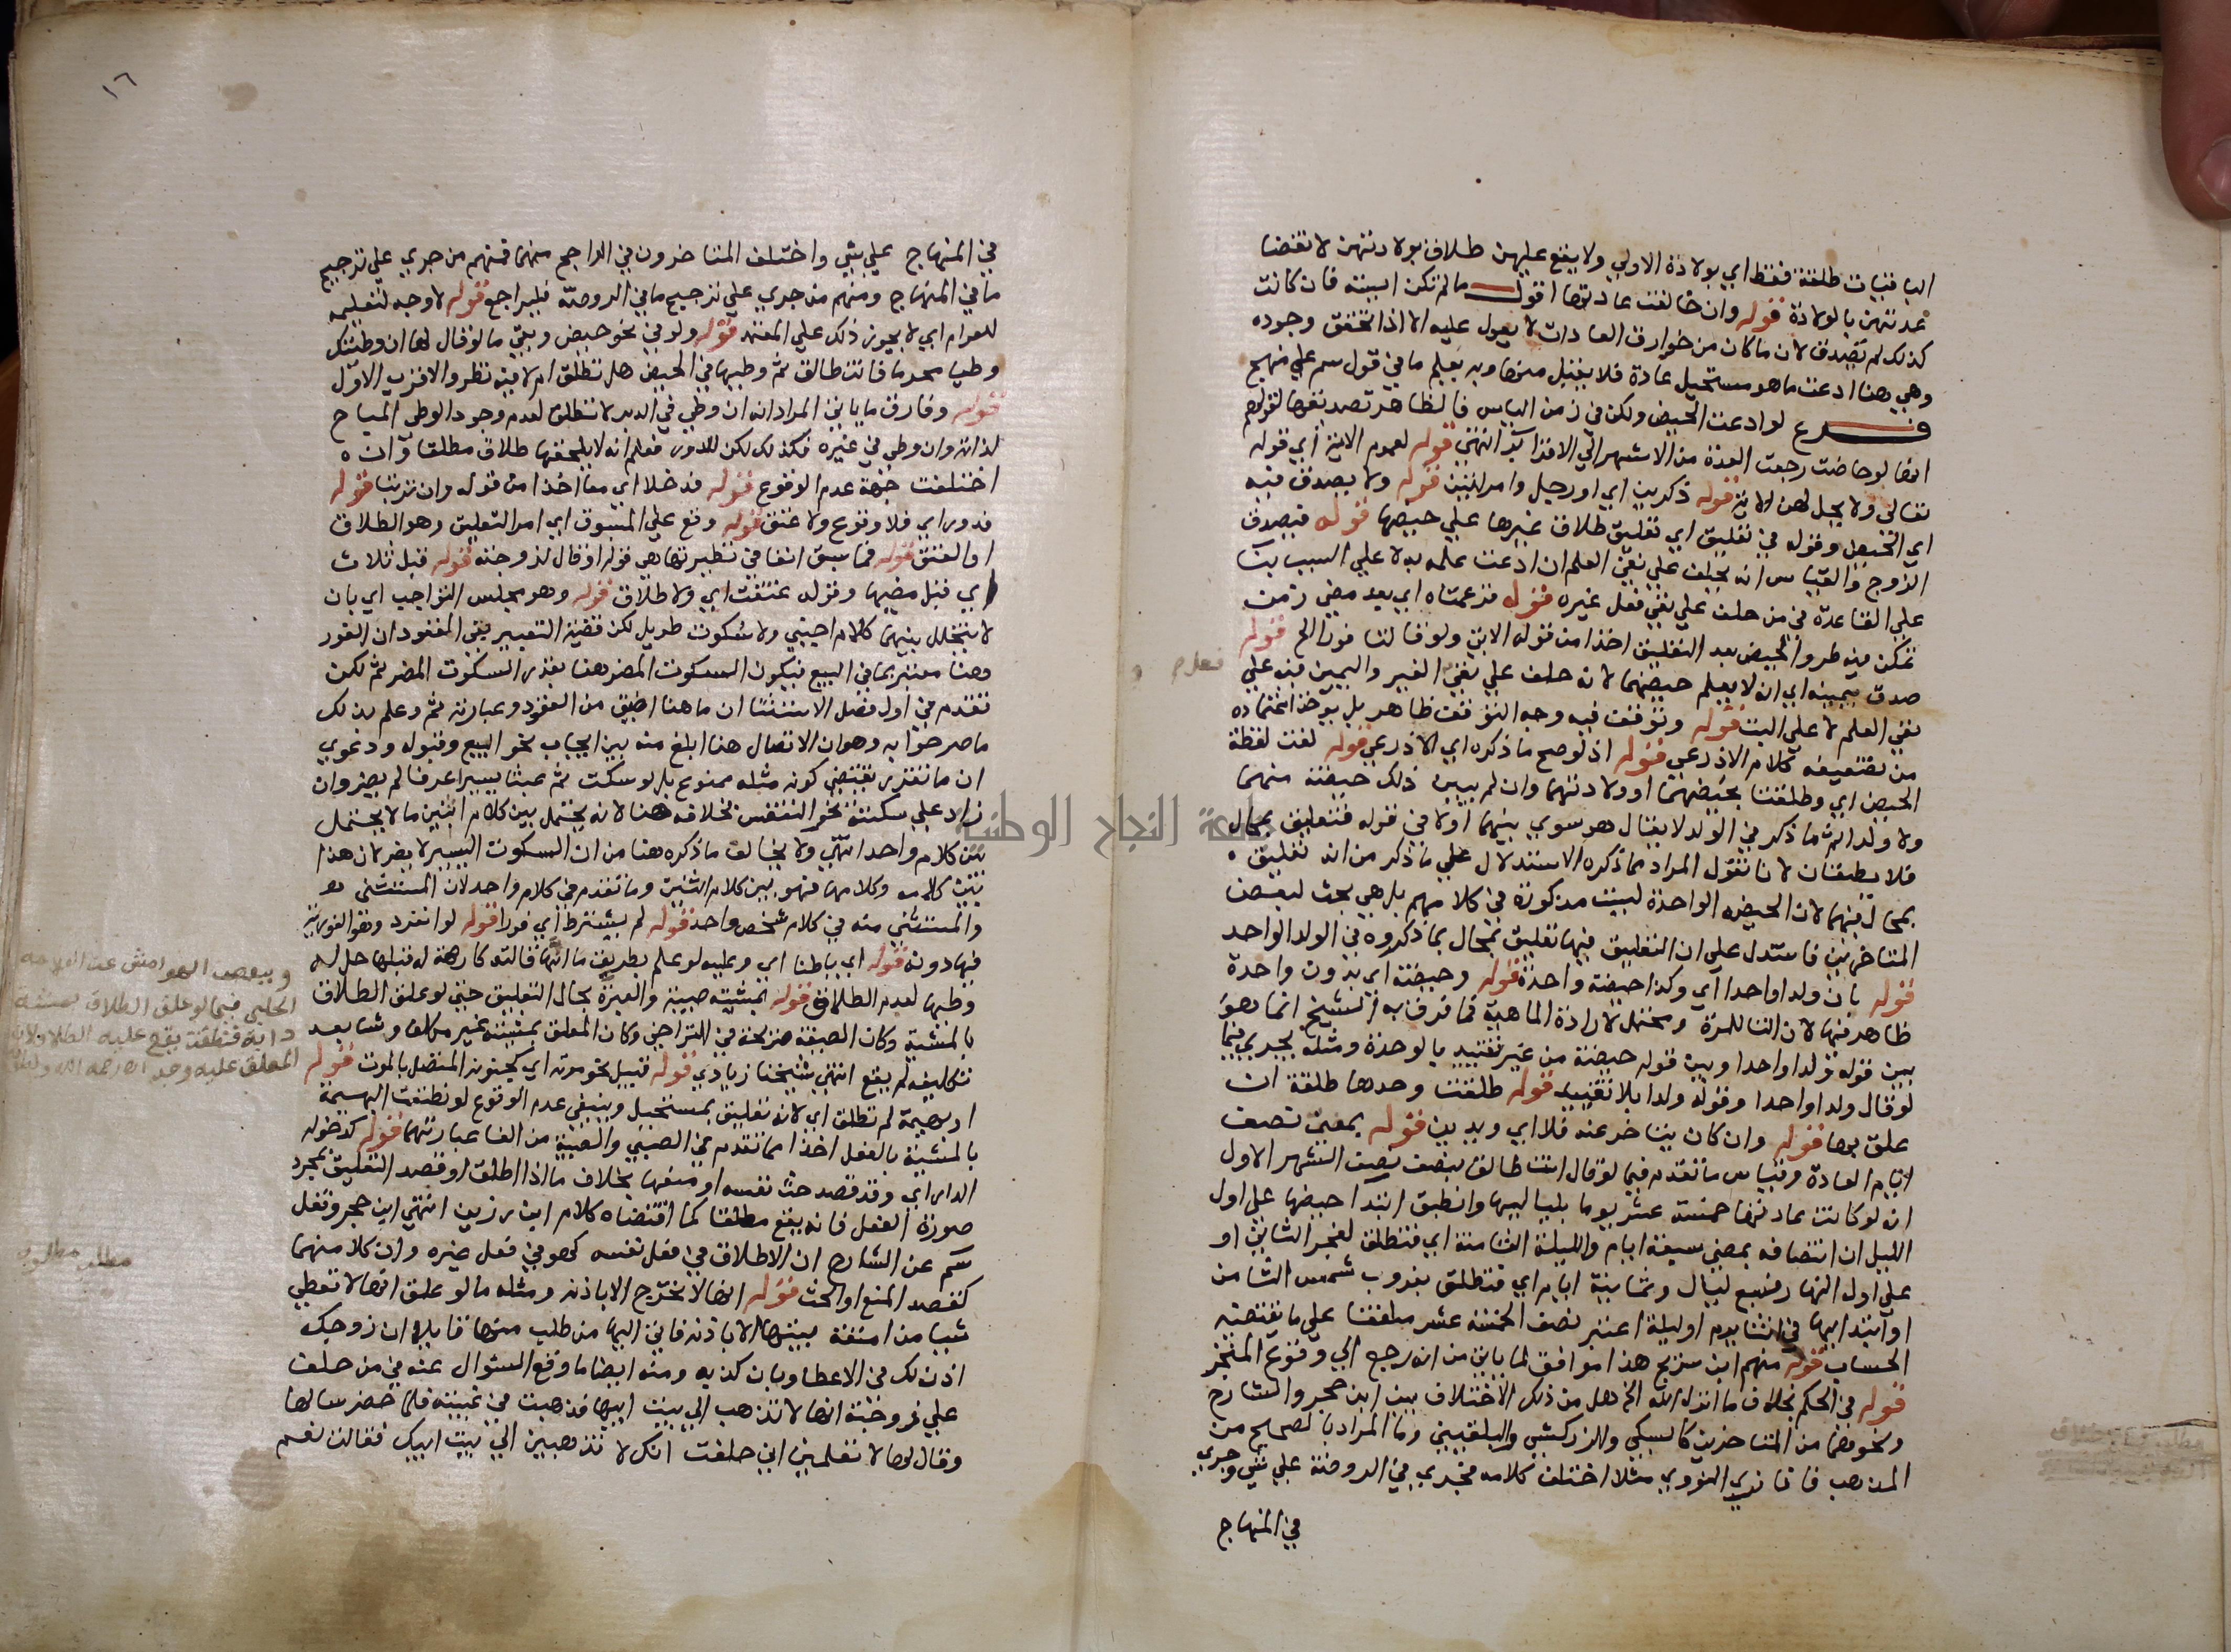 الباقيات طلقة فقط اي بولادة الاولي ولا يقع عليهن طلاق بولادتهن لانقضا
عدتهن بالولادة قوله وان خالفت عادتها اقول ما لم تكن ايسة فان كانت
كذلك لم تصدق لان ما كان من خوارق العادات لا يعول عليه الا اذا تحقق وجوده
وهي هنا ادعت ما هو مستحيل عادة فلا يقبل منها وبه يعلم ما في قول سم علي منهج
فرع لو ادعت الحيض ولكن في زمن الياس فالظاهر تصديقها لقولهم
انها لو حاضت رجعت العدة من الاشهر الي الاقرا انتهي قوله لعموم الاية اي قوله
تعالي ولا يحل لهن الاية قوله ذكرين اي او رجل وامراتين قوله ولا يصدق فيه
اي الحيض وقوله في تعليق اي تعليق طلاق غيرها علي حيضها قوله فيصدق
الزوج والقياس انه يحلف علي نفي العلم ان ادعت علمه به لا علي السبب بتا
علي القاعدة في من حلف علي نفي فعل غيره قوله فزعمتاه اي بعد مضي زمن
تمكن فيه طرو الحيض بعد التعليق اخذا من قوله الاتي ولو قالتا فورا الخ قوله
صدق بيمينه اي انه لا يعلم حيضهما لانه حلف علي نفي الغير واليمين فيه علي
نفي العلم لا علي البت قوله وتوقفت فيه وجه التوقف ظاهر بل يوخذ اعتماده
من تضعيفه كلام الاذرعي قوله اذ لوصح ما ذكره اي الاذرعي قوله لغت لفظة
الحيض اي وطلقتا بحيضهما او ولادتهما وان لم يبين ذلك حيضة منهما
ولا ولدا ثم ما ذكر في الولد لا يقال هو سوي بينهما اولا في قوله فتعليق بمحال
فلا يطلقان لانا نقول المراد بما ذكره الاستدلال علي ما ذكر من انه تعليق
بمحال فيهما لان الحيضة الواحدة ليست مذكورة في كلامهم بل هي بحث لبعض
المتاخرين فاستدل علي ان التعليق فيها تعليق بمحال بما ذكروه في الولد الواحد
قوله بان ولدا واحدا اي وكذا حيضة واحدة قوله وحيضة اي بدون واحدة
ظاهر فيها لان التا للمرة ومحتمل لارادة الماهية فما فرق به الشيخ انما هو
بين قوله ولدا واحدا وبين قوله حيضة من غير تقييد بالوحدة ومثله يجري فيما
لو قال ولدا واحدا وقوله ولدا بلا تقييد قوله طلقت وحدها طلقة ان
علق بها قوله وان كان يتاخر عنه فلا اي ويدين قوله بمضي نصف
ايام العادة وقياس ما تقدم فيما لو قال انت طالق بنصف نصف الشهر الاول
انه لو كانت عادتها خمسة عشر يوما بلياليها وانطبق ابتدا حيضها علي اول
الليل ان انتصافه بمضي سبعة ايام والليلة الثامنة اي فتطلق لفجر الثامن او
علي اول النهار فسبع ليال وثمانية ايام اي فتطلق بغروب شمس الثامن
او ابتدايها في اثنا يوم او ليلة اعتبر نصف الخمسة عشر ملفقا علي ما يقتضيه
الحساب قوله منهم ابن سريج هذا موافق لما ياتي من انه رجع الي وقوع المنجز
قوله في الحكم بخلاف ما انزل الله الخ هل من ذلك الاختلاف بين ابن حجر والشارح
ونحوهما من المتاخرين كالسبكي والزركشي والبلقيني وما المراد بالصحيح من
المذهب فاتا نري النووي مثلا اختلف كلامه فجري في الروضة علي شي وجري
في المنهاج
فعلم
١٦
في المنهاج علي شي واختلف المتاخرون في الراجح منهما فمنهم من جري علي ترجيح
ما في المنهاج ومنهم من جري علي ترجيح ما في الروضة فليراجع قوله لا وجه لتعليمه
للعوام اي لا يجوز ذلك علي المعتمد قوله ولو في نحو حيض وبقي ما لو قال لها ان وطئتك
وطيا محرما فانت طالق ثم وطيها في الحيض هل تطلق ام لا فيه نظر والاقرب الاول
قوله وفارق ما ياتي المراد انه ان وطي في الدبر لا تتطلق لعدم وجود الوطي المباح
لذاته وان وطي في غيره فكذلك لكن للدور فعلم انه لا يلحقها طلاق مطلقا وان
اختلفت جهة عدم الوقوع قوله فدخلا اي معا اخذا من قوله وان ترتبا قوله
فدور اي فلا وقوع ولا عتق قوله وقع علي المسبوق اي امر التعليق وهو الطلاق
او العتق قوله فما سبق انفا في نظيرتها هي قوله او قال لزوجته قوله قبل ثلاث
اي قبل مضيها وقوله عتقت اي ولا طلاق قوله وهو مجلس التواجب اي بان
لا يتخلل بينهما كلام اجنبي ولا سكوت طويل لكن قضية التعبير بقي المفقود ان الفور
وهنا معتبر بما في البيع فيكون السكوت المضر هنا بقدر السكوت المضر ثم لكن
تقدم في اول فصل الاستثنا ان ما هنا اضيق من العقود وعبارته ثم وعلم بذلك
ما صرحوا به وهو ان الاتصال هنا ابلغ منه بين ايجاب نحو البيع وقبوله ودعوي
ان ما تقرر يقتضي كونه مثله ممنوع بل لو سكت ثم عبثا يسيرا عرفا لم يضر وان
زاد علي سكتة نحو التنفس بخلافه هنا لانه يحتمل بين كلام اثنين ما لا يحتمل
بين كلام واحد انتهي ولا يخالف ما ذكره هنا من ان السكوت اليسير لا يضر لان هذا
بين كلامه وكلامها فهو بين كلام اثنين وما تقدم في كلام واحد لان المستثني هو
والمستثني منه في كلام شخص واحد قوله لم يشترط اي فورا قوله لو انفرد وهو الفورية
فيها دونه قوله اي باطنا اي وعليه لو علم بطريق ما انها قالته كارهة له قبلها حل له
وطيها لعدم الطلاق قوله بمشيته صبية والعبرة بحال التعليق حتي لو علق الطلاق
بالمشية وكان الصيغة صريحة في التراخي وكان المعلق بمشيته غير مكلف وشا بعد
تكليفه لم يقع انتهي شيخنا زيادي قوله قبيل نحو موته اي كجنونه المتصل بالموت قوله
او بهيمة لم تطلق اي لانه تعليق بمستحيل وينبغي عدم الوقوع لو نطقت البهيمة
بالمشية بالفعل اخذا مما تقدم في الصبي والصبية من الغا عبارتهما قوله كدخوله
الدار اي وقد قصد حث نفسه او منعها بخلاف ما اذا اطلق او قصد التعليق بمجرد
صورة الفعل فانه يقع مطلقا كما اقتضاه كلام ابن رزين انتهي ابن حجر ونقل
سم عن الشارح ان الاطلاق في فعل نفسه كهو في فعل غيره وان كلا منهما
كقصد المنع او الحث قوله انها لا تخرج الا باذنه ومثله ما لو علق انها لا تعطي
شيا من امتعة بيتها الا باذنه فاتي اليها من طلب منها قايلا ان زوجك
اذن لك في الاعطا وبان كذبه ومنه ايضا ما وقع السوال عنه في من حلف
علي زوجته انها لا تذهب الي بيت ابيها فذهبت في غيبته فلما حضر سالها
وقال لها لا تعلمين اني حلفت انك لا تذهبين الي بيت ابيك فقالت نعم
وببعض الهوامش عن العلامة
الحلبي فيما لو علق الطلاق بمشية
دابة فنطقت يقع عليه الطلاق لان
مطلب مطلوب
جامعة النجاح الوطنية